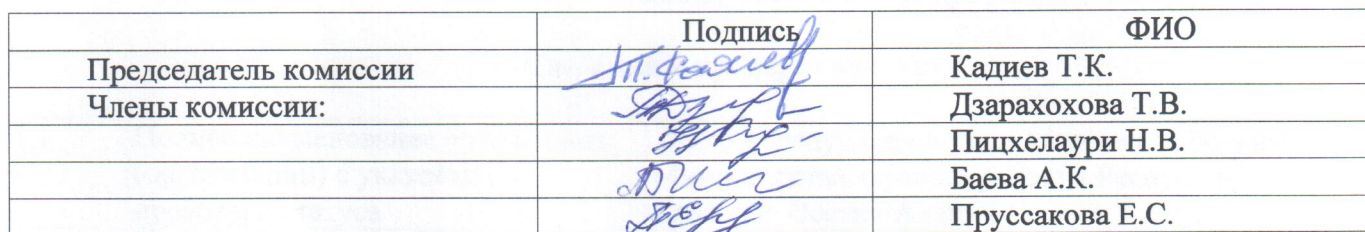 Подпись ФИО
Председатель комиссии Кадиев Т.К.
Члены комиссии: Дзарахохова Т.В.
Пицхелаури Н.В.
Баева А.К.
Пруссакова Е.С.